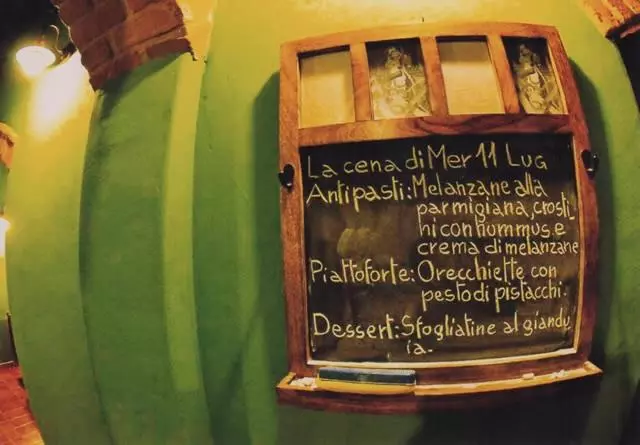 La cena di Mer 11 Lug
Antipasti: Melanzane alla
parmigiana, crosti_
ni con hummus e
crema di melanzane
Piattoforte: Orecchiette con
pesto di pistacchi.
Dessert: Sfogliatine al giandu_
ia.